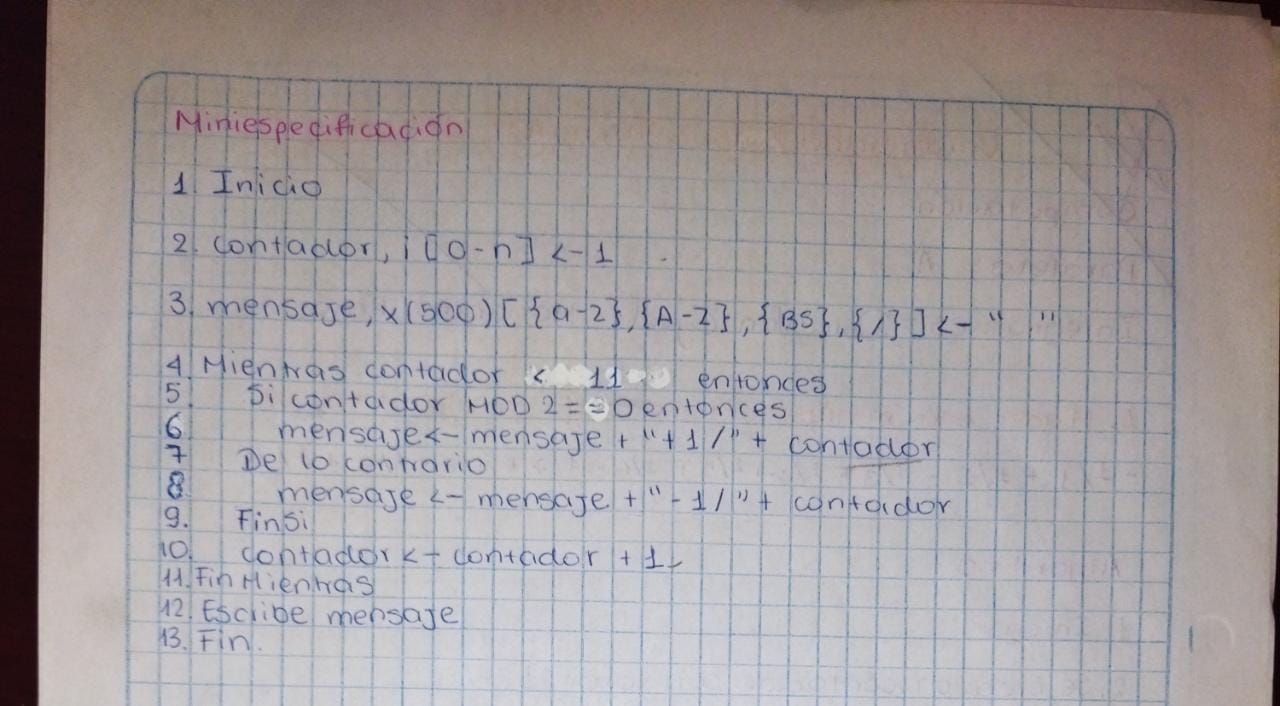 Miniespecificación
1. Inicio
2. contador, i [0-n] <-1
3. mensaje, x(500) [{a-z}, {A-Z}, {BS}, {/}] <- " "
4. Mientras contador < 11 entonces
5. Si contador MOD 2 == 0 entonces
6 mensaje <- mensaje + "+1/" + contador
7 De lo contrario
8 mensaje <- mensaje + "-1/" + contador
9. FinSi
10. contador <- contador + 1
11. Fin Mientras
12. Escribe mensaje
13. Fin.